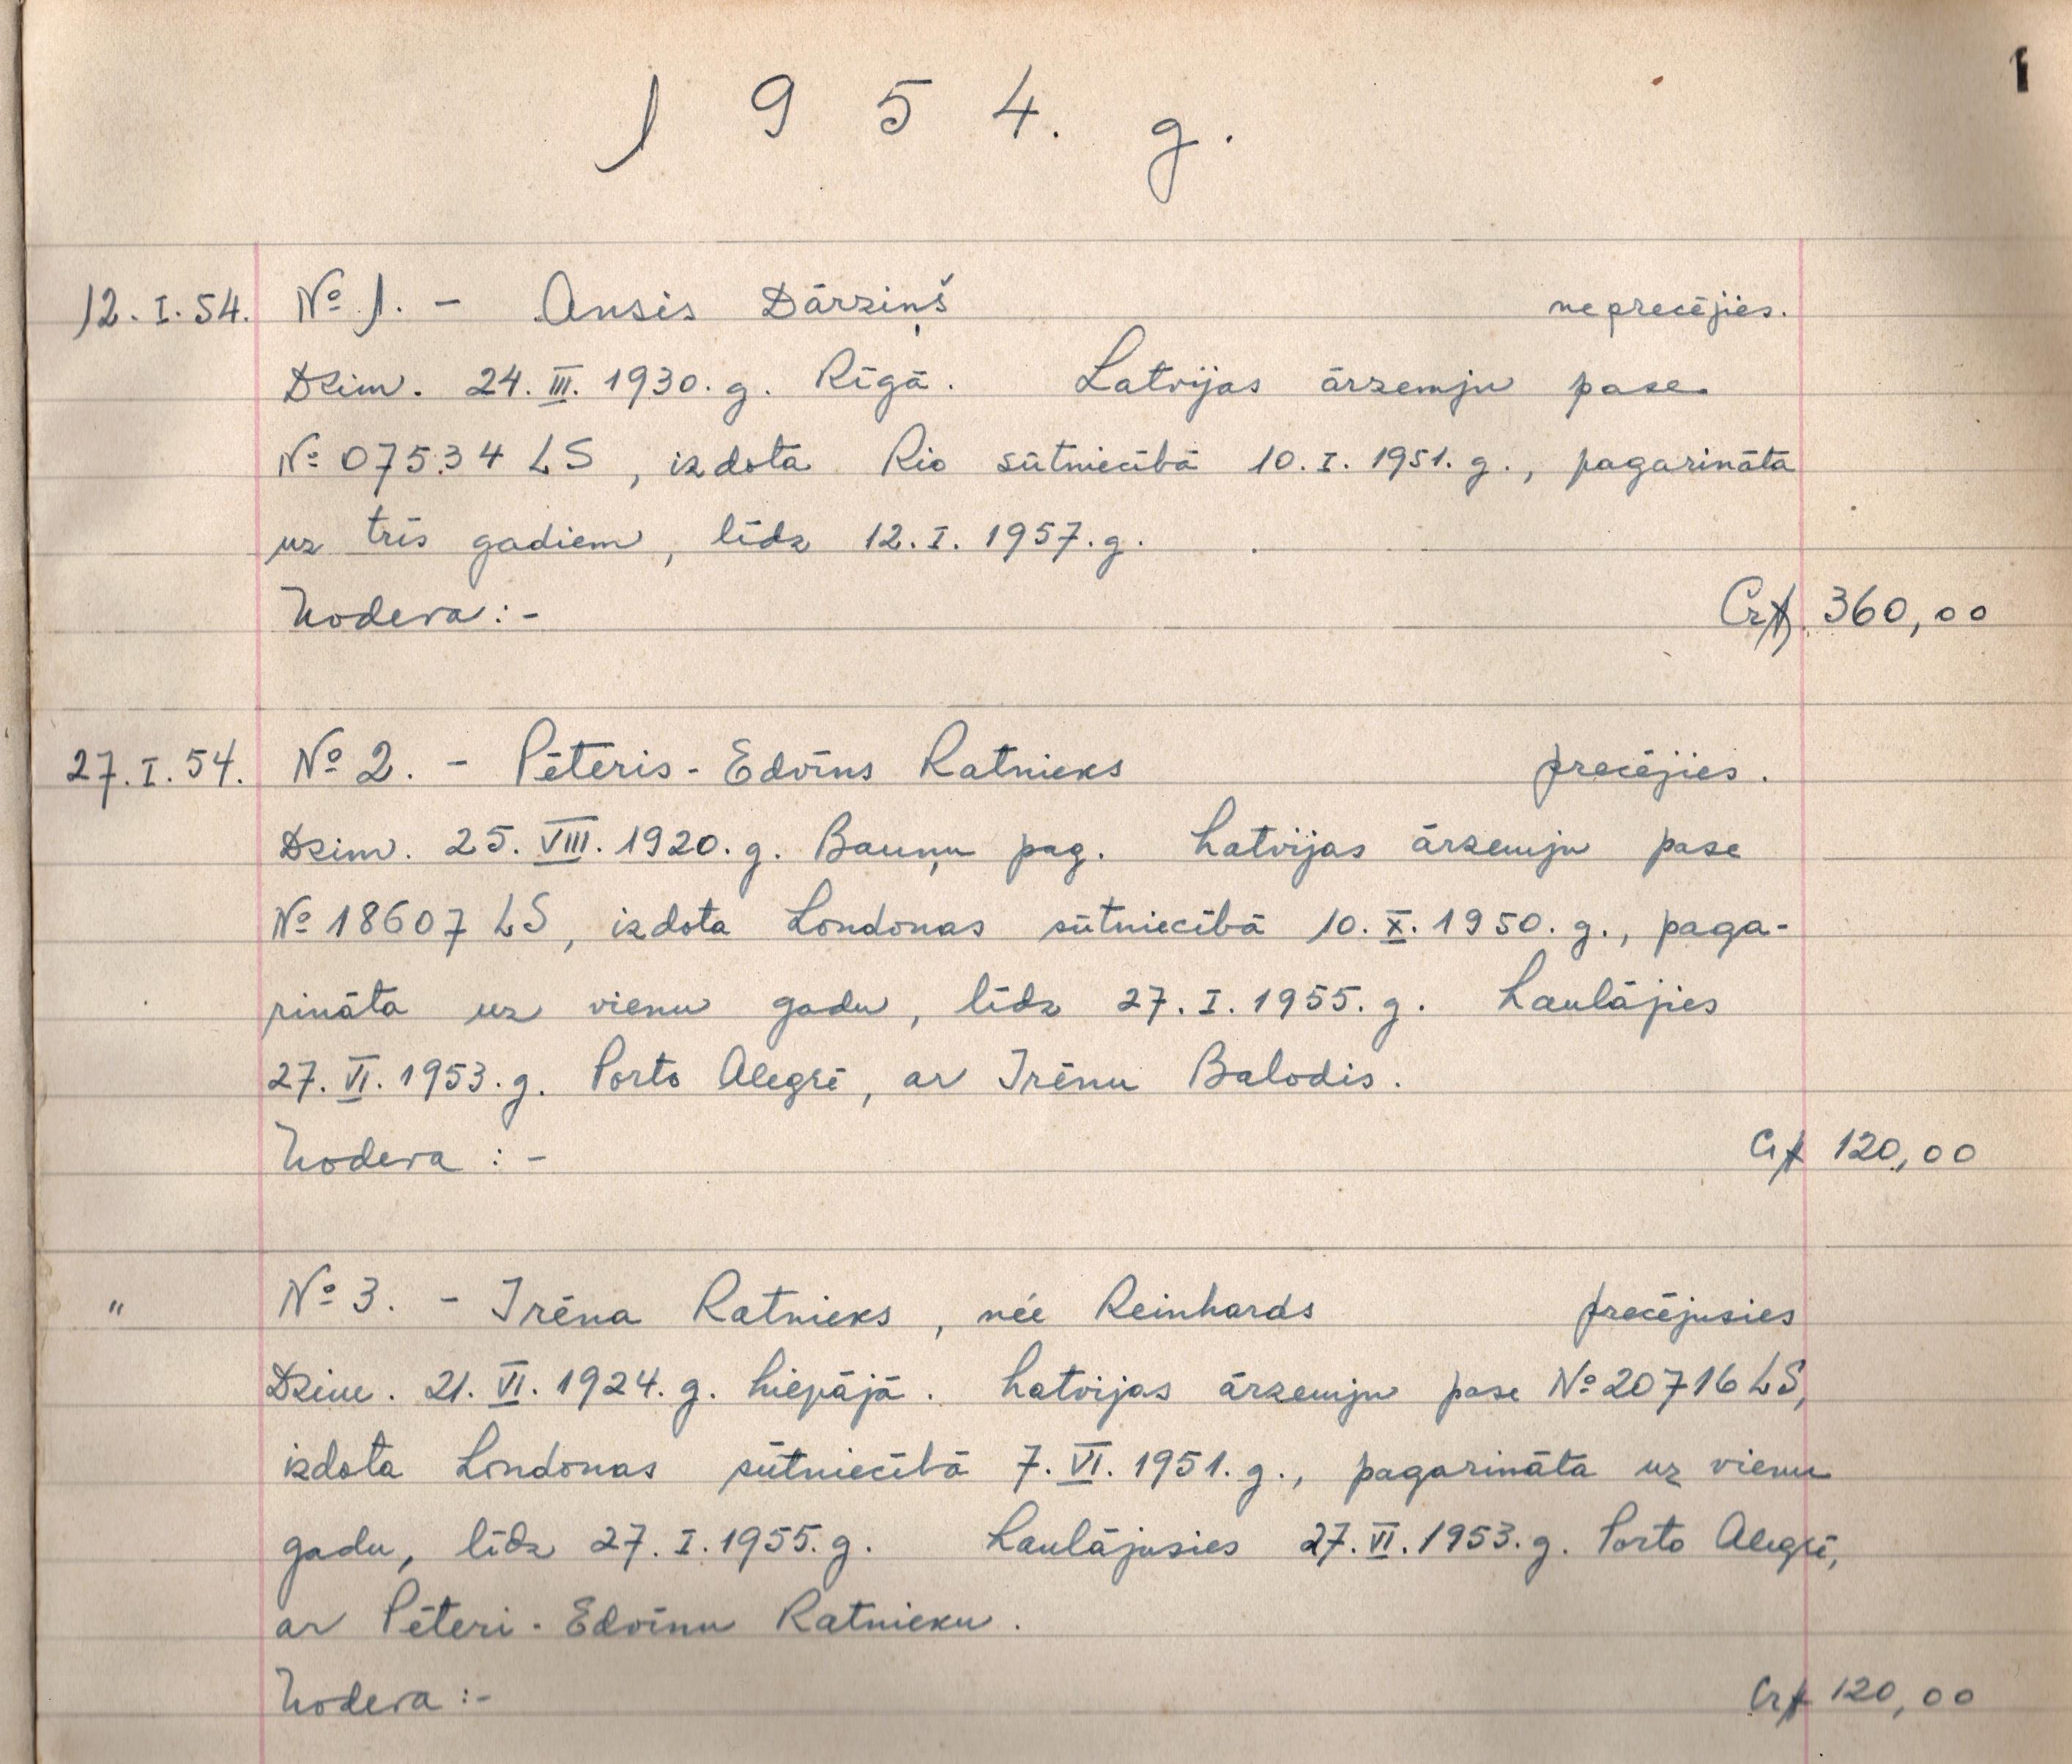 1
1954. g.
12.I.54. № 1. - Ansis Dārziņš neprecējies.
Dzim. 24.III.1930.g. Rīgā. Latvijas ārzemju pase
№ 07534 LS, izdota Rio sūtniecībā 10.I.1951.g., pagarināta
uz trīs gadiem, līdz 12.I.1957.g.
Nodeva:- Cr$ 360,00
27.I.54. № 2. - Pēteris-Edvīns Ratnieks precējies.
Dzim. 25.VIII.1920.g. Bauņu pag. Latvijas ārzemju pase
№ 18607 LS, izdota Londonas sūtniecībā 10.X.1950.g., paga-
rināta uz vienu gadu, līdz 27.I.1955.g. Laulājies
27.VI.1953.g. Porto Alegrē, ar Irēnu Balodis.
Nodeva:- Cr$ 120,00
" № 3. - Irēna Ratnieks, née Reinhards precējusies
Dzim. 21.VI.1924.g. Liepājā. Latvijas ārzemju pase № 20716 LS,
izdota Londonas sūtniecībā 7.VI.1951.g., pagarināta uz vienu
gadu, līdz 27.I.1955.g. Laulājusies 27.VI.1953.g. Porto Alegrē,
ar Pēteri-Edvīnu Ratnieku.
Nodeva:- Cr$ 120,00